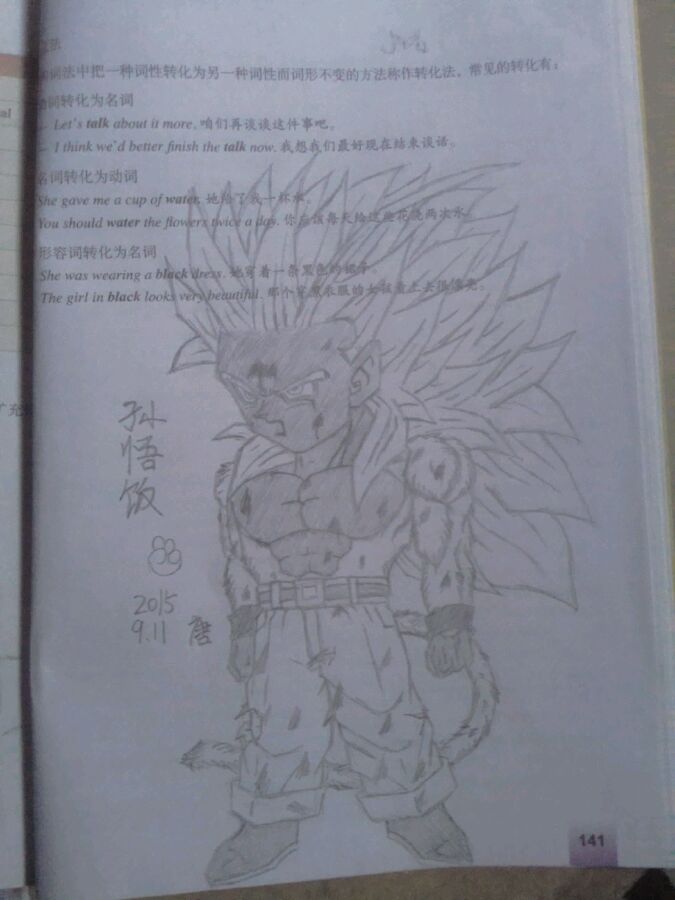 词法中把一种词性转化为另一种词性而词形不变的方法称作转化法。常见的转化有：
动词转化为名词
Let's talk about it more. 咱们再谈谈这件事吧。
I think we'd better finish the talk now. 我想我们最好现在结束谈话。
名词转化为动词
She gave me a cup of water. 她给了我一杯水。
You should water the flowers twice a day. 你应该每天给这些花浇两次水。
形容词转化为名词
She was wearing a black dress. 她穿着一条黑色的裙子。
The girl in black looks very beautiful. 那个穿黑衣服的女孩看上去很漂亮。
孙悟饭
2015
9.11 唐
141